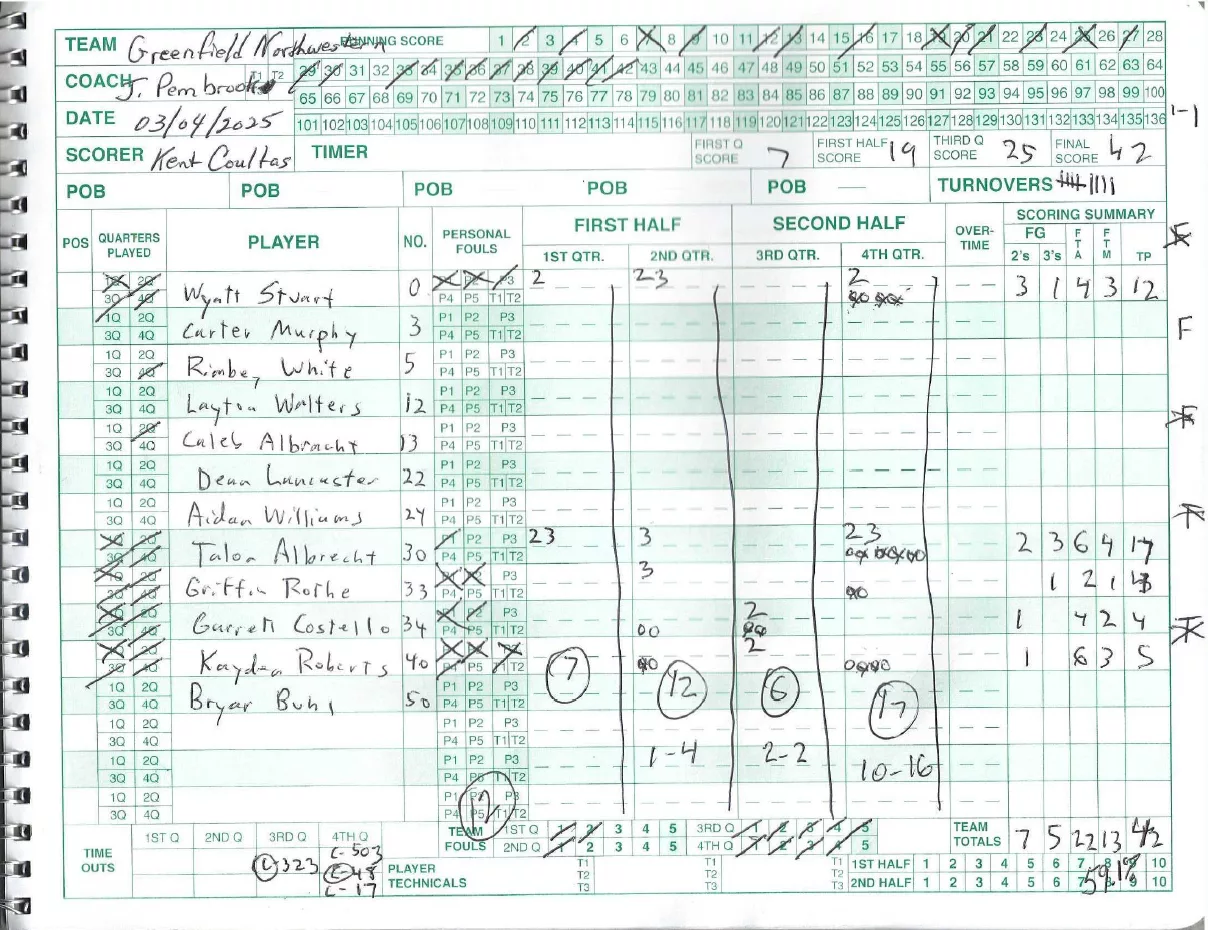 TEAM Greenfield Northwestern RUNNING SCORE 1 2 3 4 5 6 7 8 9 10 11 12 13 14 15 16 17 18 19 20 21 22 23 24 25 26 27 28
COACH J. Pembrook T1 T2 29 30 31 32 33 34 35 36 37 38 39 40 41 42 43 44 45 46 47 48 49 50 51 52 53 54 55 56 57 58 59 60 61 62 63 64
65 66 67 68 69 70 71 72 73 74 75 76 77 78 79 80 81 82 83 84 85 86 87 88 89 90 91 92 93 94 95 96 97 98 99 100
DATE 03/04/2025 101 102 103 104 105 106 107 108 109 110 111 112 113 114 115 116 117 118 119 120 121 122 123 124 125 126 127 128 129 130 131 132 133 134 135 136 1-1
SCORER Kent Coultas TIMER FIRST Q SCORE 7 FIRST HALF SCORE 19 THIRD Q SCORE 25 FINAL SCORE 42
POB POB POB POB POB — TURNOVERS
POS QUARTERS PLAYED PLAYER NO. PERSONAL FOULS FIRST HALF SECOND HALF OVER-TIME SCORING SUMMARY
1ST QTR. 2ND QTR. 3RD QTR. 4TH QTR. FG 2's 3's FTA FTM TP
1Q 2Q 3Q 4Q Wyatt Stuart 0 P1 P2 P3 P4 P5 T1 T2 2 23 2 3 1 4 3 12
1Q 2Q 3Q 4Q Carter Murphy 3 P1 P2 P3 P4 P5 T1 T2 F
1Q 2Q 3Q 4Q White 5 P1 P2 P3 P4 P5 T1 T2
1Q 2Q 3Q 4Q Layton Walters 12 P1 P2 P3 P4 P5 T1 T2
1Q 2Q 3Q 4Q Caleb Albracht 13 P1 P2 P3 P4 P5 T1 T2
1Q 2Q 3Q 4Q Dean Lancaster 22 P1 P2 P3 P4 P5 T1 T2
1Q 2Q 3Q 4Q Aidan Williams 24 P1 P2 P3 P4 P5 T1 T2
1Q 2Q 3Q 4Q Talon Albrecht 30 P1 P2 P3 P4 P5 T1 T2 23 3 23 2 3 6 4 17
1Q 2Q 3Q 4Q Griffin Rothe 33 P1 P2 P3 P4 P5 T1 T2 3 1 2 1
1Q 2Q 3Q 4Q Garrett Costello 34 P1 P2 P3 P4 P5 T1 T2 00 2 1 4 2 4
1Q 2Q 3Q 4Q Kayden Roberts 40 P1 P2 P3 P4 P5 T1 T2 7 2 1 6 3 5
1Q 2Q 3Q 4Q Bryar Buhl 50 P1 P2 P3 P4 P5 T1 T2 12 6 17
1Q 2Q 3Q 4Q P1 P2 P3 P4 P5 T1 T2
1Q 2Q 3Q 4Q P1 P2 P3 P4 P5 T1 T2 1-4 2-2 10-16
1Q 2Q 3Q 4Q P1 P2 P3 P4 P5 T1 T2 12
TIME OUTS 1ST Q 2ND Q 3RD Q 4TH Q TEAM FOULS 1ST Q 1 2 3 4 5 3RD Q 1 2 3 4 5 TEAM TOTALS 7 5 22 13 42
2ND Q 1 2 3 4 5 4TH Q 1 2 3 4 5
L 323 L-503 L-48 L-17 PLAYER TECHNICALS T1 T2 T3 T1 T2 T3 T1 T2 T3 1ST HALF 1 2 3 4 5 6 7 8 9 10
2ND HALF 1 2 3 4 5 6 7 8 9 10 59.1%